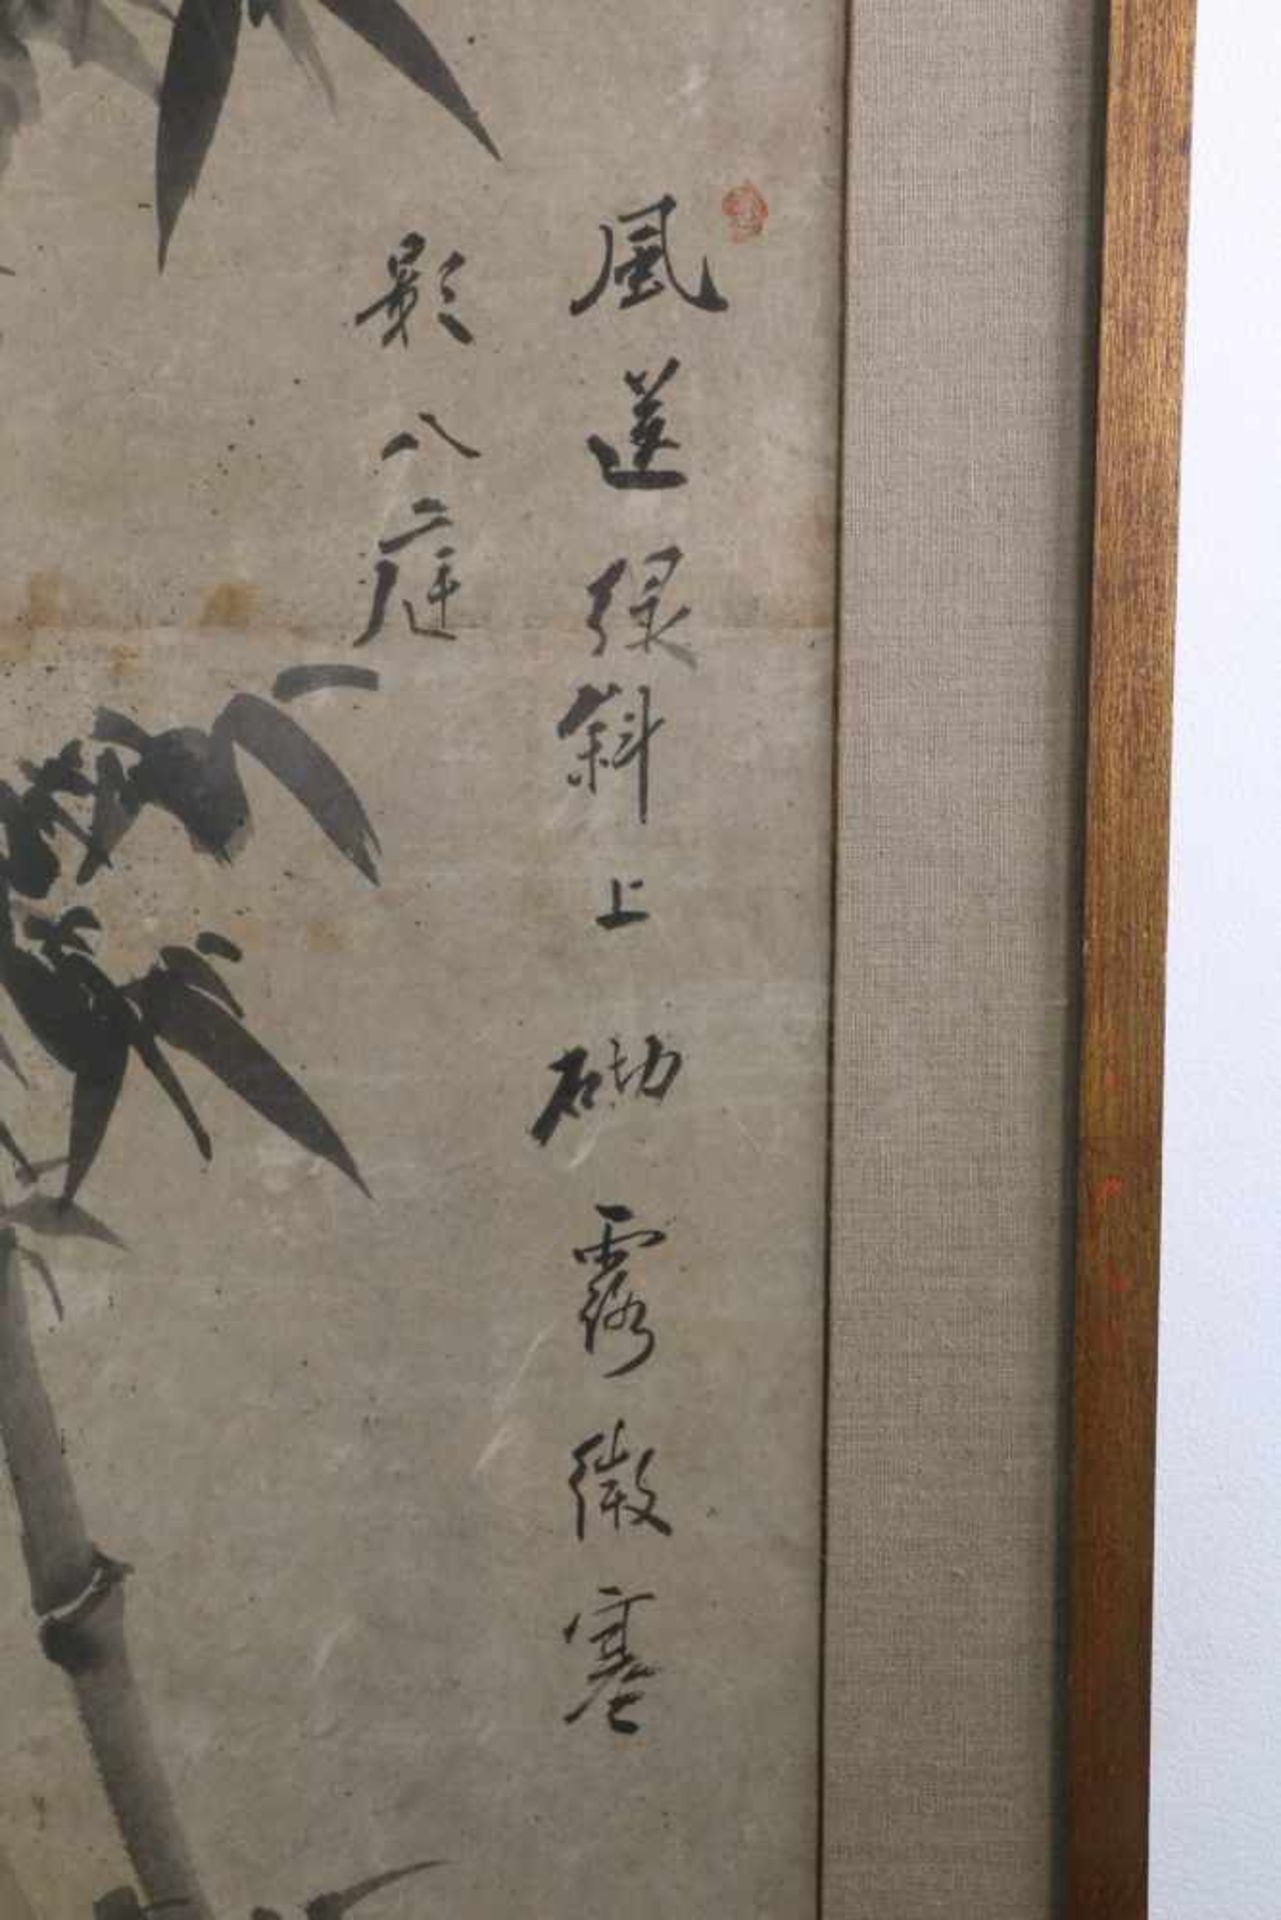 風送緑斜上砌露微寒
影入庭